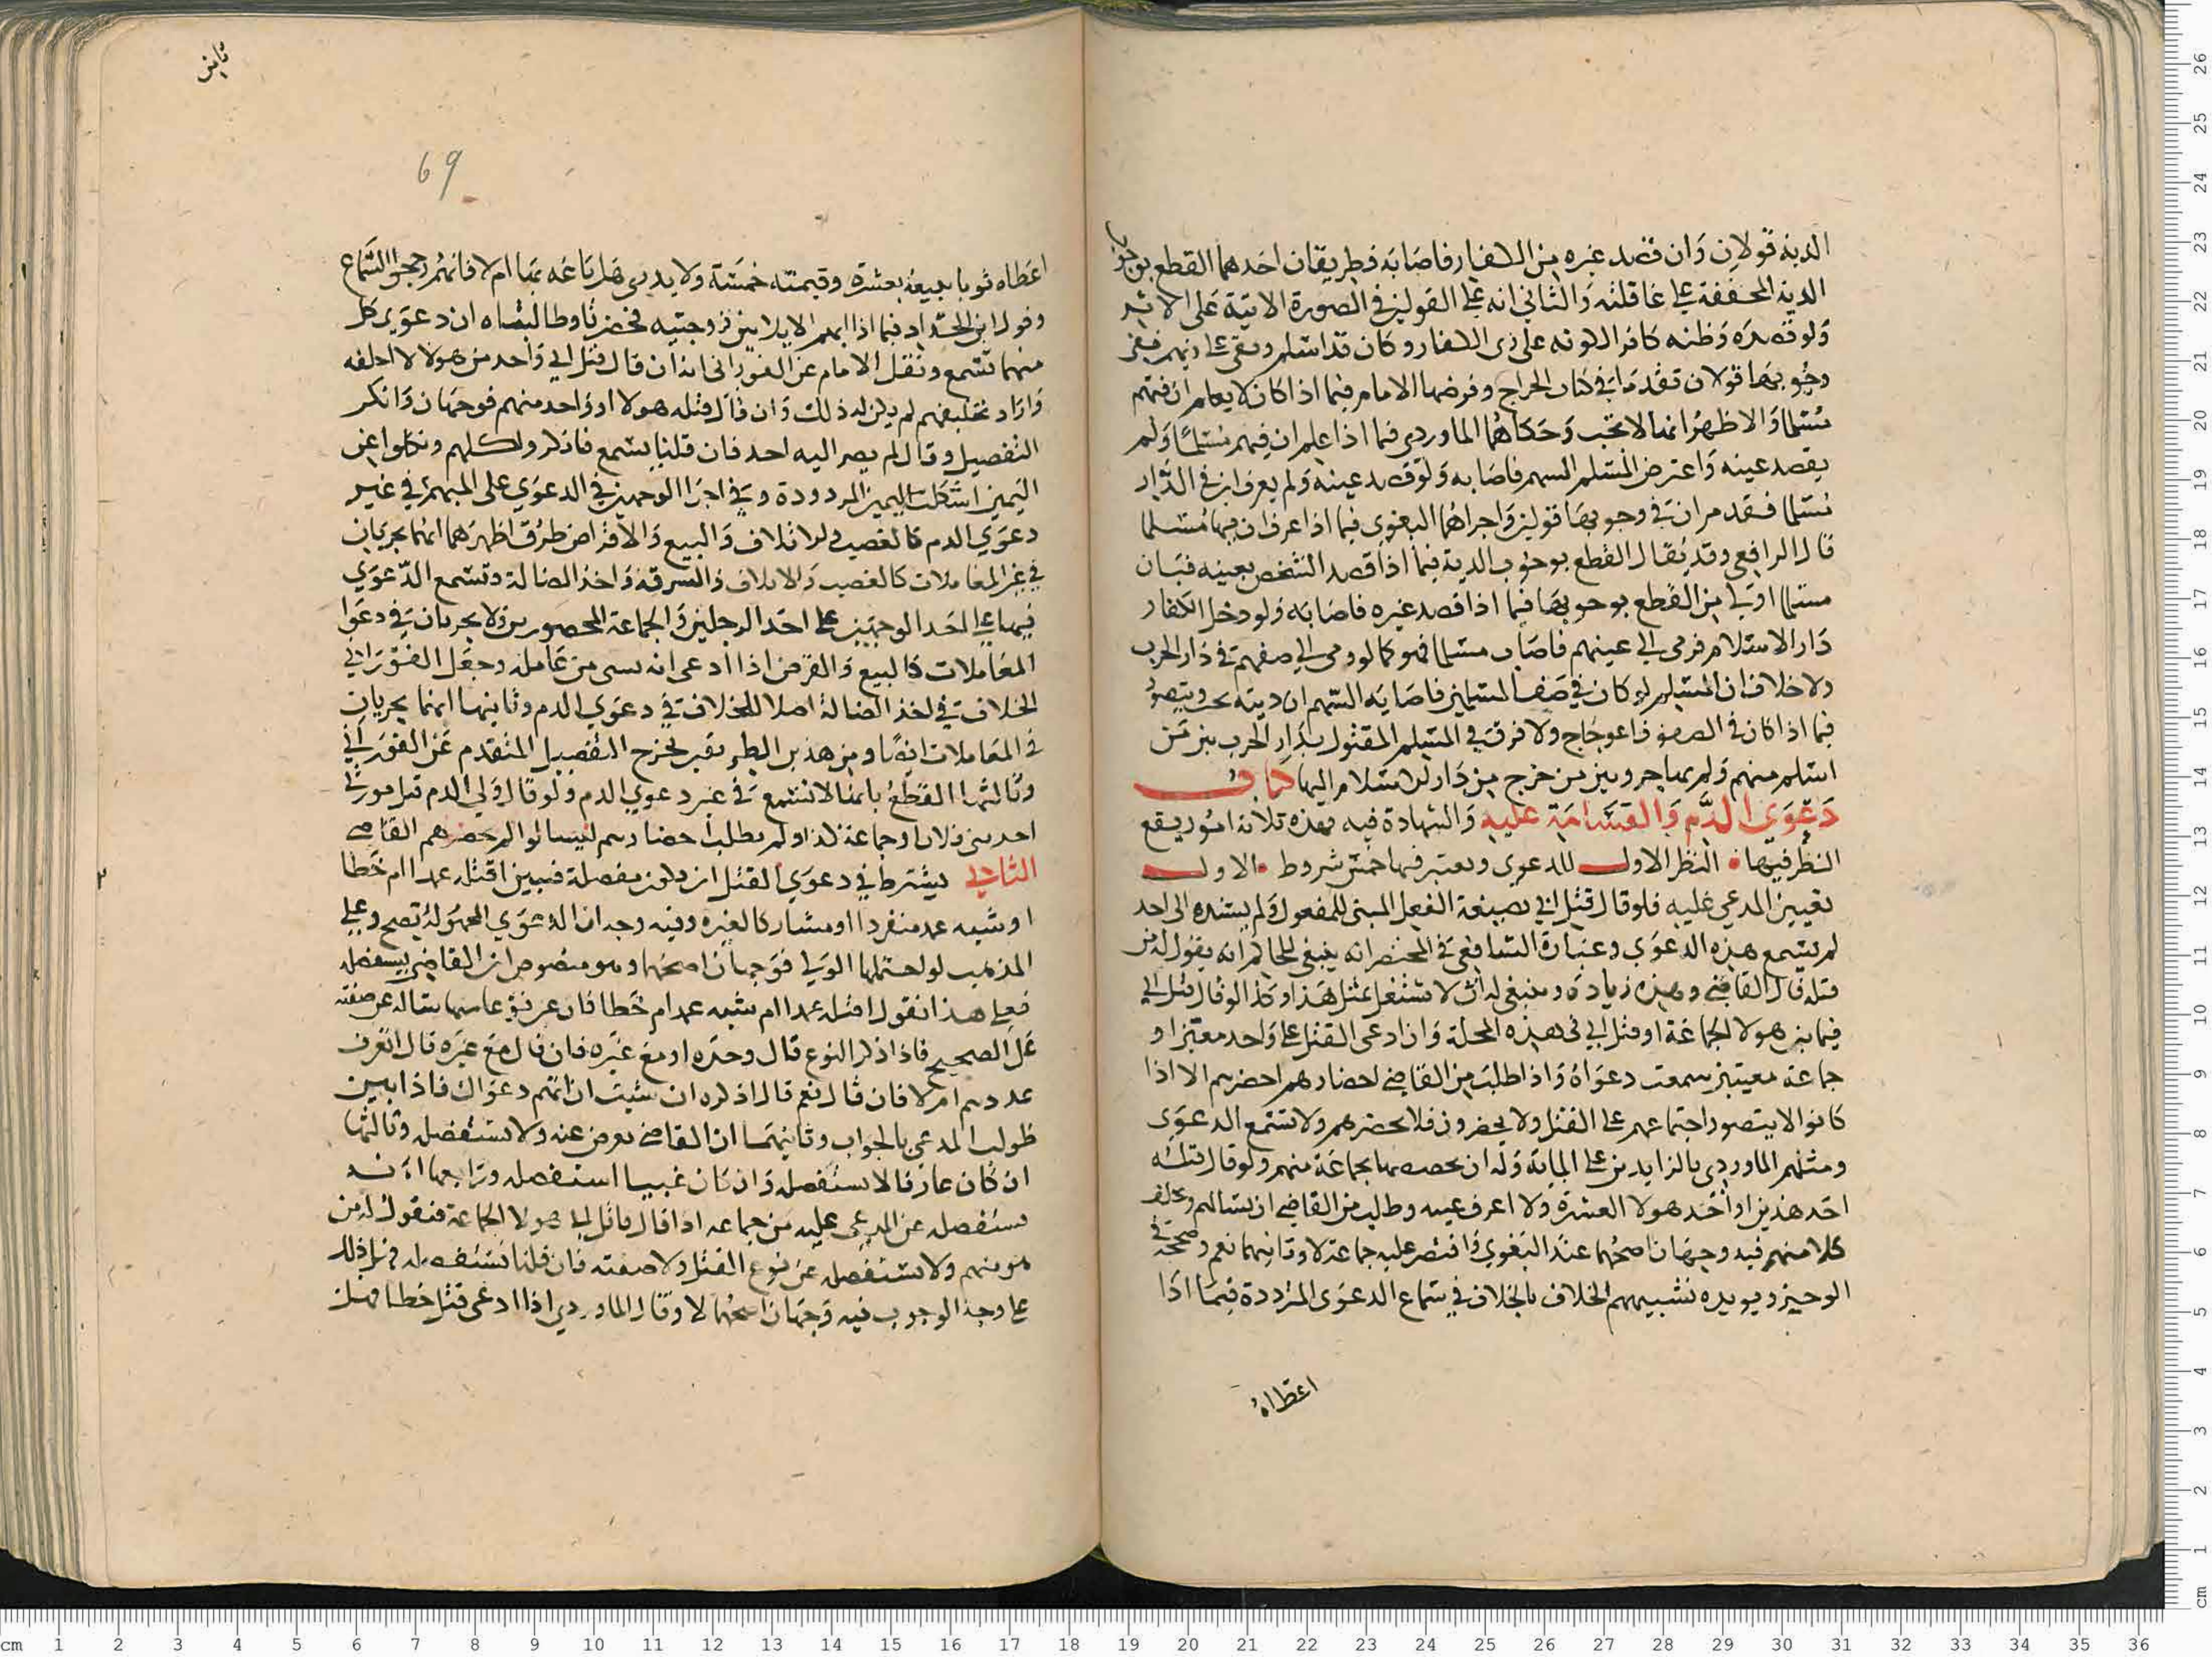 الدية قولان وان قصد غيره من الكفار فاصابه فطريقان احدهما القطع بوجوب
الدية المخففة على عاقلته والثاني انه على القولين في الصورة الاتية على الاثر
ولو قصده وظنه كافرا لكونه على زي الكفار وكان قد اسلم وبقي
وجوبها قولان تقدما في كتاب الجراح وفرضها الامام فيما اذا كان لا يعلم ان فيهم
مسلما والاظهر انها لا تجب وحكاهما الماوردي فيما اذا علم ان فيهم مسلما ولم
يقصد عينه واعترض المسلم السهم فاصابه ولو قصد عينه ولم يعرف ان في الدار
مسلما فقد مر ان في وجوبها قولين واجراهما البغوي فيما اذا عرف ان فيها مسلما
قال الرافعي وقد يقال القطع بوجوب الدية فيما اذا قصد الشخص بعينه فبان
مسلما اولى من القطع بوجوبها فيما اذا قصد غيره فاصابه ولو دخل الكفار
دار الاسلام فرمى الى عينهم فاصاب مسلما فهو كما لو رمى الى صفهم في دار الحرب
ولا خلاف ان المسلم لو كان في صف المسلمين فاصابه السهم ان ديته تجب ويتصور
فيما اذا كان في الصفوف اعوجاج ولا فرق في المسلم المقتول بدار الحرب بين من
اسلم منهم ولم يهاجر وبين من خرج من دار الاسلام اليها كتاب
دعوى الدم والقسامة عليه والشهادة فيه فهذه ثلاثة امور يقع
النظر فيها النظر الاول للدعوي ويعتبر فيها خمس شروط الاول
تعيين المدعي عليه فلو قال قتل ابي بصيغة الفعل المبني للمفعول ولم يسنده الى احد
لم تسمع هذه الدعوي وعبارة الشافعي في المختصر انه ينبغي للحاكم انه يقول له من
قتله قال القاضي وهذه زيادة وينبغي له ان لا تشتغل بمثل هذا وكذا لو قال قتل ابي
فيما بين هولا الجماعة او قتل ابي في هذه المحلة وان ادعى القتل على واحد معين او
جماعة معينين سمعت دعواه واذا طلب من القاضي احضارهم احضرهم الا اذا
كانوا لا يتصور اجتماعهم على القتل ولا يحضرون فلا يحضرهم ولا تسمع الدعوي
ومثلهم الماوردي بالزايدين على الماية وله ان يخصها بجماعة منهم ولو قال قتله
احد هذين او احد هولا العشرة ولا اعرف عينه وطلب من القاضي ان يسالهم ويحلف
كلا منهم فيه وجهان اصحهما عند البغوي واقتصر عليه جماعة لا وثانيهما نعم وصححه في
الوجيز ويويده تشبيههم الخلاف بالخلاف في سماع الدعوى المرددة فيما اذا
اعطاه
ثامن
69
اعطاه ثوبا ليبيعه بعشرة وقيمته خمسة ولا يدري هل باعه بها ام لا فانهم رجحوا السماع
وقول ابن الحداد فيما اذا ابهم الايلا بين زوجتيه فحضرتا وطالبتاه ان دعوى كل
منهما تسمع ونقل الامام عن الفوراني انه ان قال قتل ابي واحد من هولا لا احلفه
واراد تحليفهم لم يكن له ذلك وان قال قتله هولا او واحد منهم فوجهان وانكر
التفصيل وقال لم يصر اليه احد فان قلنا يسمع فانكروا كلهم ونكلوا عن
اليمين اشكلت اليمين المردودة وفي اجرا الوجهين في الدعوي على المبهم في غير
دعوي الدم كالغصب والاتلاف والبيع والاقراض طرق اظهرهما انهما يجريان
في غير المعاملات كالغصب والاتلاف والسرقة واخذ الضالة وتسمع الدعوي
فيها على احد الوجهين على احد الرجلين والجماعة المحصورين ولا يجريان في دعوا
المعاملات كالبيع والقرض اذا ادعى انه نسى من عامله وجعل الفوراني
الخلاف في اخذ الضالة اصلا للخلاف في دعوي الدم وثانيها انهما يجريان
في المعاملات ايضا ومن هذين الطريقين تخرج التفصيل المتقدم عن الفوراني
وثالثها القطع بانها لا تسمع في غير دعوي الدم ولو قال ولي الدم قتل مورثي
احد بني فلان او جماعة كذا ولم يطلب احضارهم ليسالوا لم يحضرهم القاضي
الثاني يشترط في دعوي القتل ان يكون مفصلة فيبين اقتله عمدا ام خطا
او شبه عمد منفردا او مشاركا لغيره وفيه وجه ان الدعوي المجهولة تصح وعلى
المذهب لو اجملها الولي فوجهان اصحهما وهو منصوص ان القاضي يستفصله
فعلى هذا نقول اقتله عمدا ام شبه عمد ام خطا فان عرف نوعا منها ساله عن صفته
على الصحيح فاذا ذكر النوع قال وحده او مع غيره فان قال مع غيره قال اتعرف
عددهم ام لا فان قال نعم قال اذكره ان شيت ان تتم دعواك فاذا بين
طولب المدعي بالجواب وثانيهما ان القاضي يعرض عنه ولا يستفصل وثالثها
ان كان عارفا لا يستفصله وان كان غبيا استفصله ورابعها انه
يستفصله عن المدعى عليه من جماعه اذا قال قاتل ابي هولا الجماعة فنقول له من
هو منهم ولا يستفصله عن نوع القتل ولا صفته فان قلنا يستفصله فهل ذلك
على وجه الوجوب فيه وجهان اصحهما لا وقال الماوردي اذا ادعى قتل خطا فهل